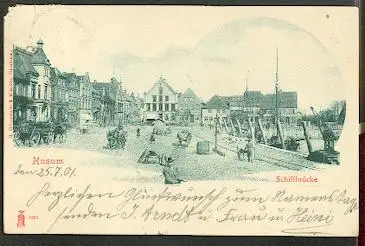 Husum
Schiffbrücke
den 25.7.01.
Herzlichen Glückwunsch zum Namenstag
senden J. Arndt u Frau u Heini